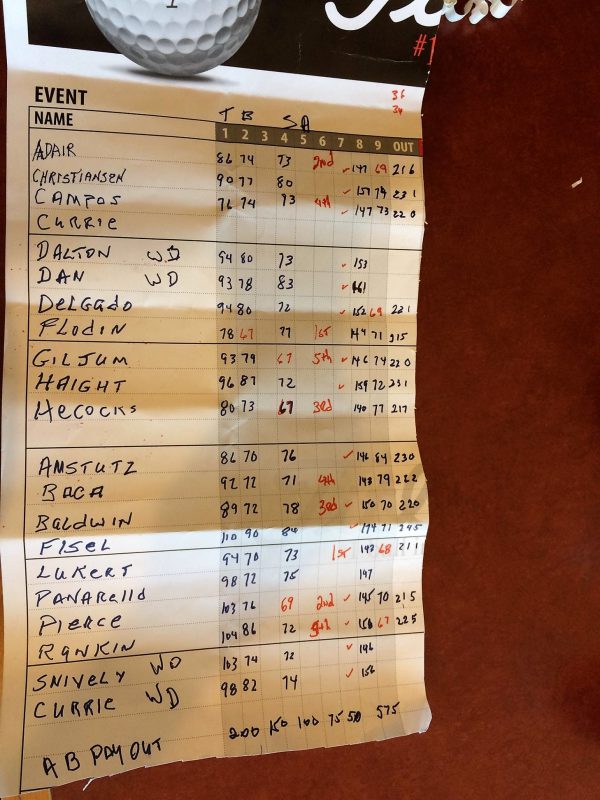 #1
36
34
EVENT
T B SA
NAME 1 2 3 4 5 6 7 8 9 OUT
ADAIR 86 74 73 2nd ✓ 147 69 216
CHRISTIANSEN 90 77 80 ✓ 157 74 231
CAMPOS 76 74 73 4th ✓ 147 73 220
CURRIE
DALTON WD 94 80 73 ✓ 153
DAN WD 93 78 83 ✓ 161
DELGADO 94 80 72 ✓ 152 69 221
FLODIN 78 67 77 1st 144 71 215
GILJUM 93 79 67 5th ✓ 146 74 220
HAIGHT 96 87 72 ✓ 159 72 231
HECOCKS 80 73 67 3rd 140 77 217
AMSTUTZ 86 70 76 ✓ 146 84 230
BACA 92 72 71 4th 143 79 222
BALDWIN 89 72 78 3rd ✓ 150 70 220
FISEL 110 90 84 ✓ 174 71 245
LUKERT 94 70 73 1st 143 68 211
PANARELLO 98 72 75 147
PIERCE 103 76 69 2nd ✓ 145 70 215
RANKIN 104 86 72 5th ✓ 158 67 225
SNIVELY WD 103 74 72 ✓ 146
CURRIE WD 98 82 74 ✓ 156
A B PAY OUT 200 150 100 75 50 575